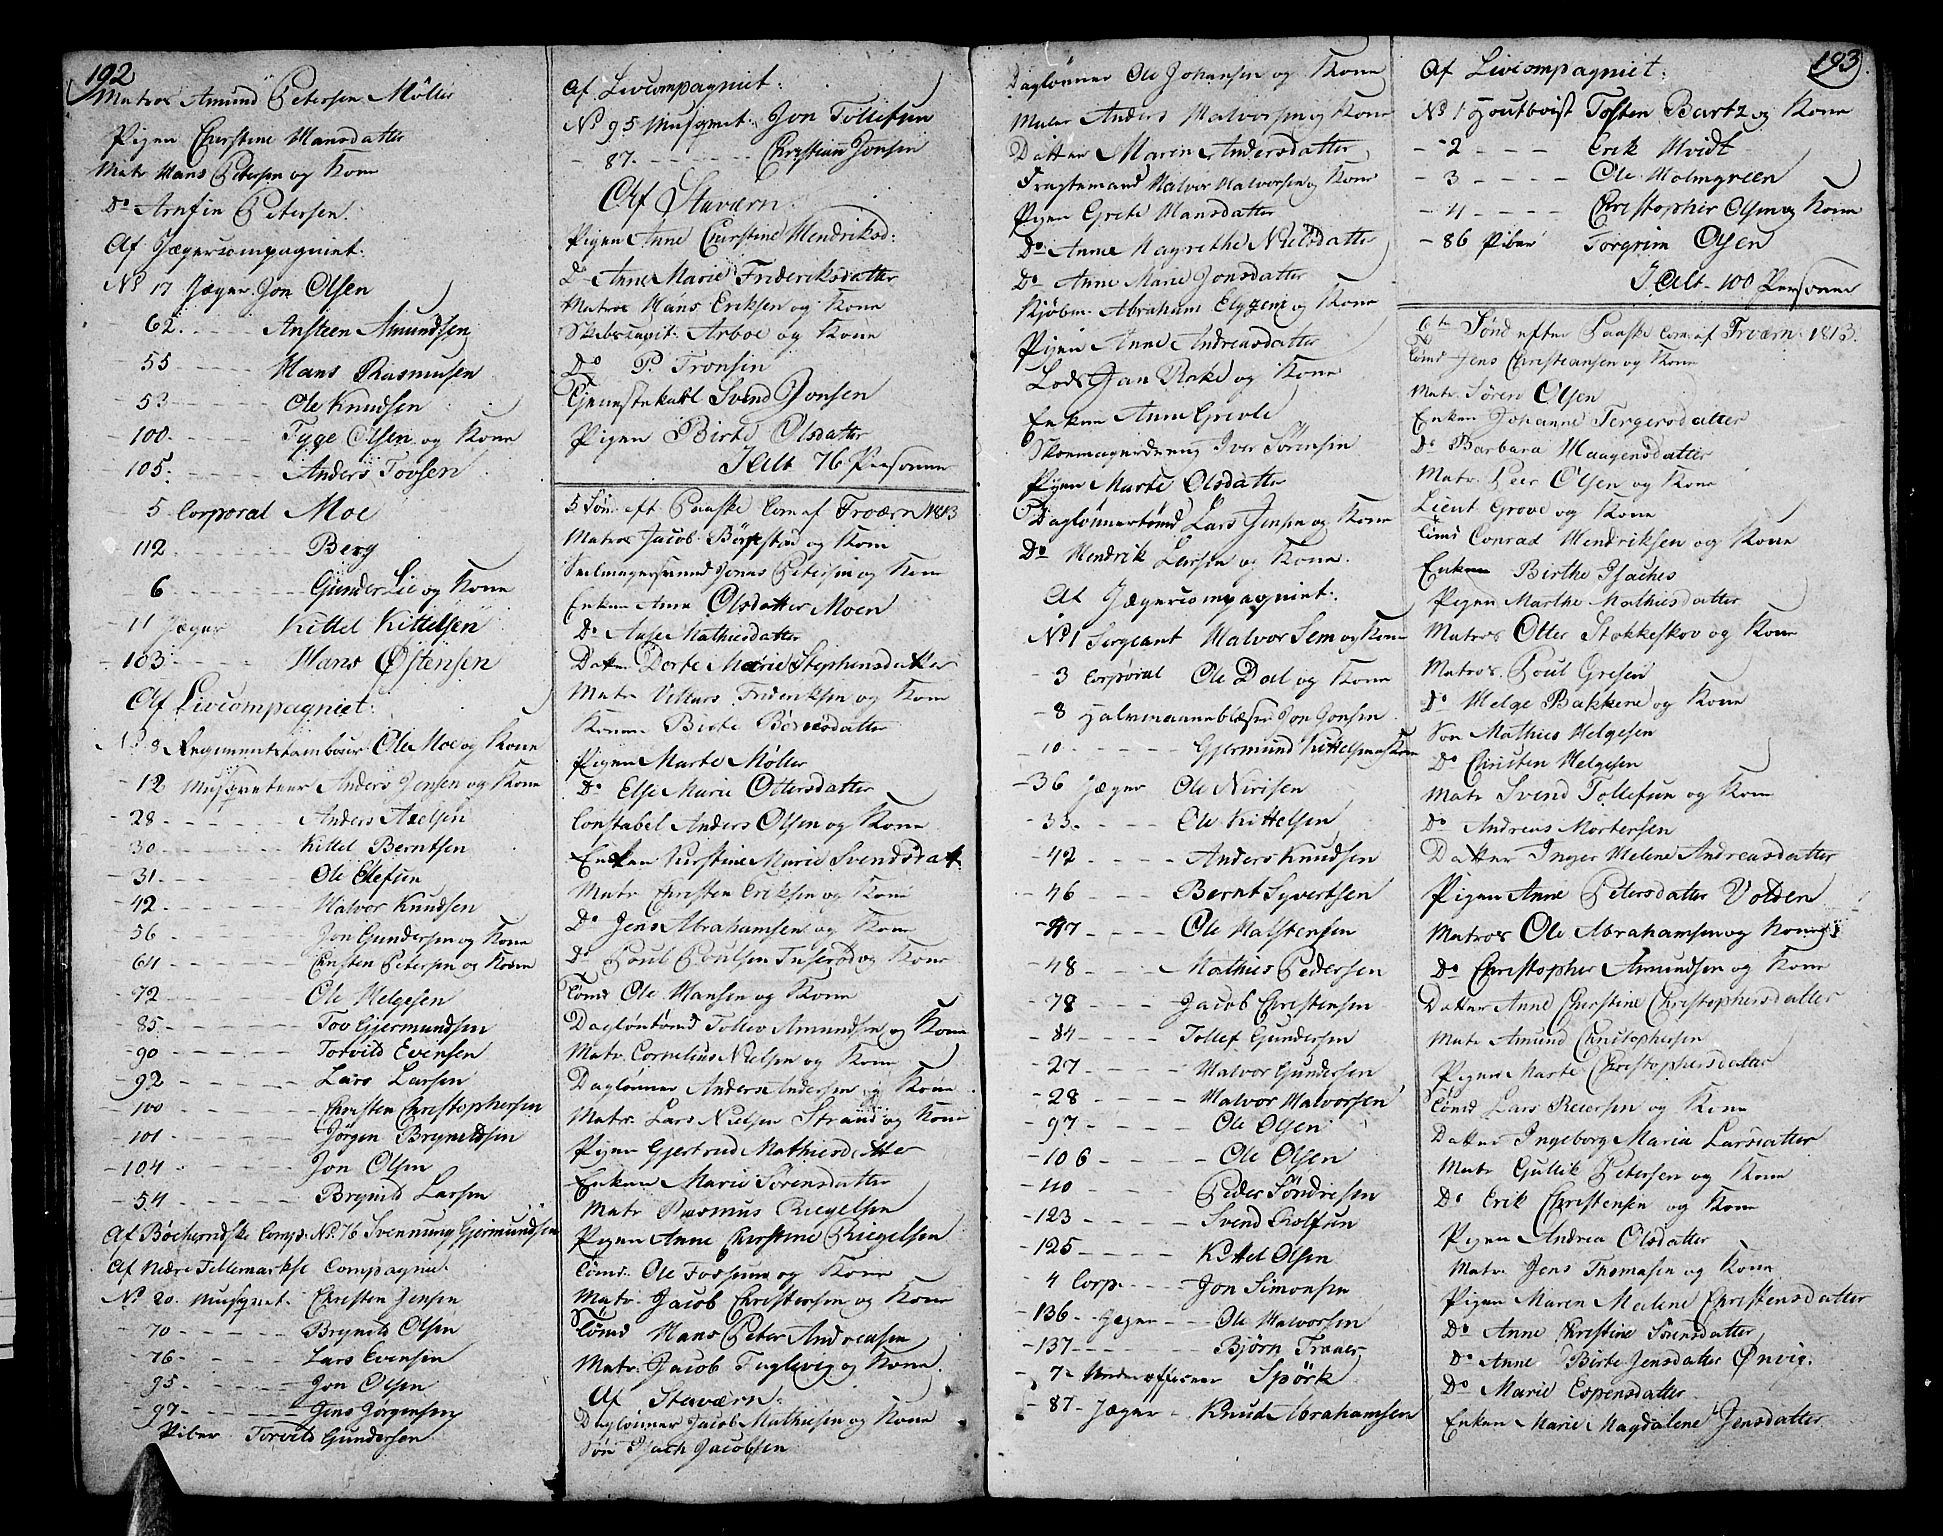 192
Matros Amund Petersen Möller
Pigen Christine Hansdatter
Matr Hans Petersen og Kone
Do Arnfin Petersen
Af Jægercompagniet:
No 17 Jæger Jon Olsen
62 Ansteen Amundsen
55 Hans Rasmusen
53 Ole Knudsen
100 Tyge Olsen og Kone
105 Anders Tovsen
5 Corporal Moe
112 Berg
6 Gunder Lie og Kone
11 Jæger Kittel Kittelsen
103 Hans Østensen
Af Livcompagniet:
No 8 Regimentstambour Ole Moe og Kone
12 Musqueteer Anders Jensen og Kone
28 Anders Axelsen
30 Kittel Berntsen
31 Ole Elefsen
42 Halvor Knudsen
56 Jon Gundersen og Kone
64 Christen Petersen og Kone
72 Ole Helgesen
85 Tov Gjermundsen
90 Torvild Evensen
92 Lars Larsen
100 Christen Christophersen
101 Jørgen Brynildsen
104 Jon Olsen
54 Brynild Larsen
Af Böeherredske Comp: No 76 Svennung Gjermundsen
Af Nære Tellemarkse Compagnie
No 20 Musquet. Christen Jensen
70 Brynild Olsen
76 Lars Evensen
95 Jon Olsen
97 Jens Jørgensen
Piber Torvild Gundersen
Af Livcompagniet:
No 95 Musqnet: Jon Tollefsen
87 Christian Jonsen
Af Staværn:
Pigen Anne Christine Hendriksd:
Do Anne Marie Frideriksdatter
Matros Hans Eriksen og Kone
Skibscapit: Arboe og Kone
Do P. Tronsen
Tjenestekarl Svend Jonsen
Pigen Birte Olsdatter
I Alt 76 Personer
5 Sön: eft Paaske Com: af Frværn 1813
Matros Jacob Börrestad og Kone
Seilmagersvend Jonas Petersen og Kone
Enken Anne Olsdatter Moen
Do Aase Mathiesdatter
Datter Dorte Marie Stephensdatter
Matr Villars Frideriksen og Kone
Konen Birte
Pigen Marte Møller
Do Else Marie Ottersdatter
Constabel Anders Olsen og Kone
Enken Kirstine Marie Svendsdat
Matr Christen Eriksen og Kone
Do Jens Abrahamsen og Kone
Do Poul Poulsen Tuserød og Kone
Tömd Ole Hansen og Kone
Daglöntömd Tollev Amundsen og Kone
Matr. Cornelius Nielsen og Kone
Daglønner Anders Andersen og Kone
Matr. Lars Nielsen Strand og Kone
Pigen Gjertrud Mathiesdatter
Enken Marie Sörensdatter
Matr Rasmus Riegelsen
Pigen Anne Christine Riegelsen
Tömd. Ole Fossum og Kone
Matr. Jacob Christensen og Kone
Tömd Hans Peter Andreasen
Matr. Jacob Fuglevig og Kone
Af Staværn:
Daglønner Jacob Mathiesen og Kone
Søn Isach Jacobsen
193
Daglønner Ole Johansen og Kone
Maler Anders Halvorsen og Kone
Datter Maren Andersdatter
Fragtemand Halvor Halvorsen og Kone
Pigen Grete Hansdatter
Do Anne Magrethe Nielsdatter
Do Anne Marie Jonsdatter
Kjøbm. Abraham og Kone
Pigen Anne Andreasdatter
Lods Jan Rake og Kone
Enken Anne Grevle
Skoemagerdreng Iver Sörensen
Pigen Marte Olsdatter
Daglønnertömd Lars Jensen og Kone
Do Hendrik Larsen og Kone
Af Jægercompagniet:
No 1 Sergeant Halvor Sem og Kone
3 Corporal Ole Dal og Kone
8 Halvmaaneblæser Jon Jonsen
10 Gjermund Kittelsen og Kone
36 Jæger Ole Nirisen
33 Ole Kittelsen
42 Anders Knudsen
46 Bernt Syvertsen
47 Ole Halstensen
48 Mathies Pedersen
78 Jacob Christensen
84 Tollef Gundersen
27 Halvor Gundersen
28 Halvor Halvorsen
97 Ole Olsen
106 Ole Olsen
110 Peder Söndresen
123 Svend Rolfsen
125 Kittel Olsen
4 Corp. Jon Simonsen
136 Jæger Ole Halvorsen
137 Bjørn Traaer
7 Underofficeer Spörk
87 Jæger Knud Abrahamsen
Af Livcompagniet:
No 1 Houtboist Tosten Bartz og Kone
2 Erik Hvidt
3 Ole Holmgreen
4 Christopher Olsen og Kone
86 Piber Torgrim Olsen
I Alt 100 Personer
6te Sönd efter Paaske Com: af Frværn 1813.
Tömd Jens Christiansen og Kone
Matr. Sören Olsen
Enken Johanne Tergersdatter
Do Barbara Haagensdatter
Matr. Peer Olsen og Kone
Lieut Grove og Kone
Tömd Conrad Hendriksen og Kone
Enken Birthe Isaches
Pigen Marthe Mathiesdatter
Matros Otter Stokkeskov og Kone
Matros Poul Gresen
Do Helge Bakkene og Kone
Søn Mathies Helgesen
Do Christen Helgesen
Matr Svend Tollefsen og Kone
Do Andreas Mortensen
Datter Inger Helene Andreasdatter
Pigen Anne Petersdatter Volden
Matros Ole Abrahamsen og Kone
Do Christopher Amundsen og Kone
Datter Anne Christine Christophersdatter
Matr Amund Christophersen
Pigen Marte Christophersdatter
Tömd Lars Petersen og Kone
Datter Ingeborg Maria Larsdatter
Matr Gullik Petersen og Kone
Do Erik Christensen og Kone
Pigen Andrea Olsdatter
Matr. Jens Thomasen og Kone
Pigen Maren Malene Christensdatter
Do Anne Christine Sörensdatter
Do Anne Birte Jensdatter Ønvig.
Do Marie Espensdatter
Enken Marie Magdalene Jensdatter